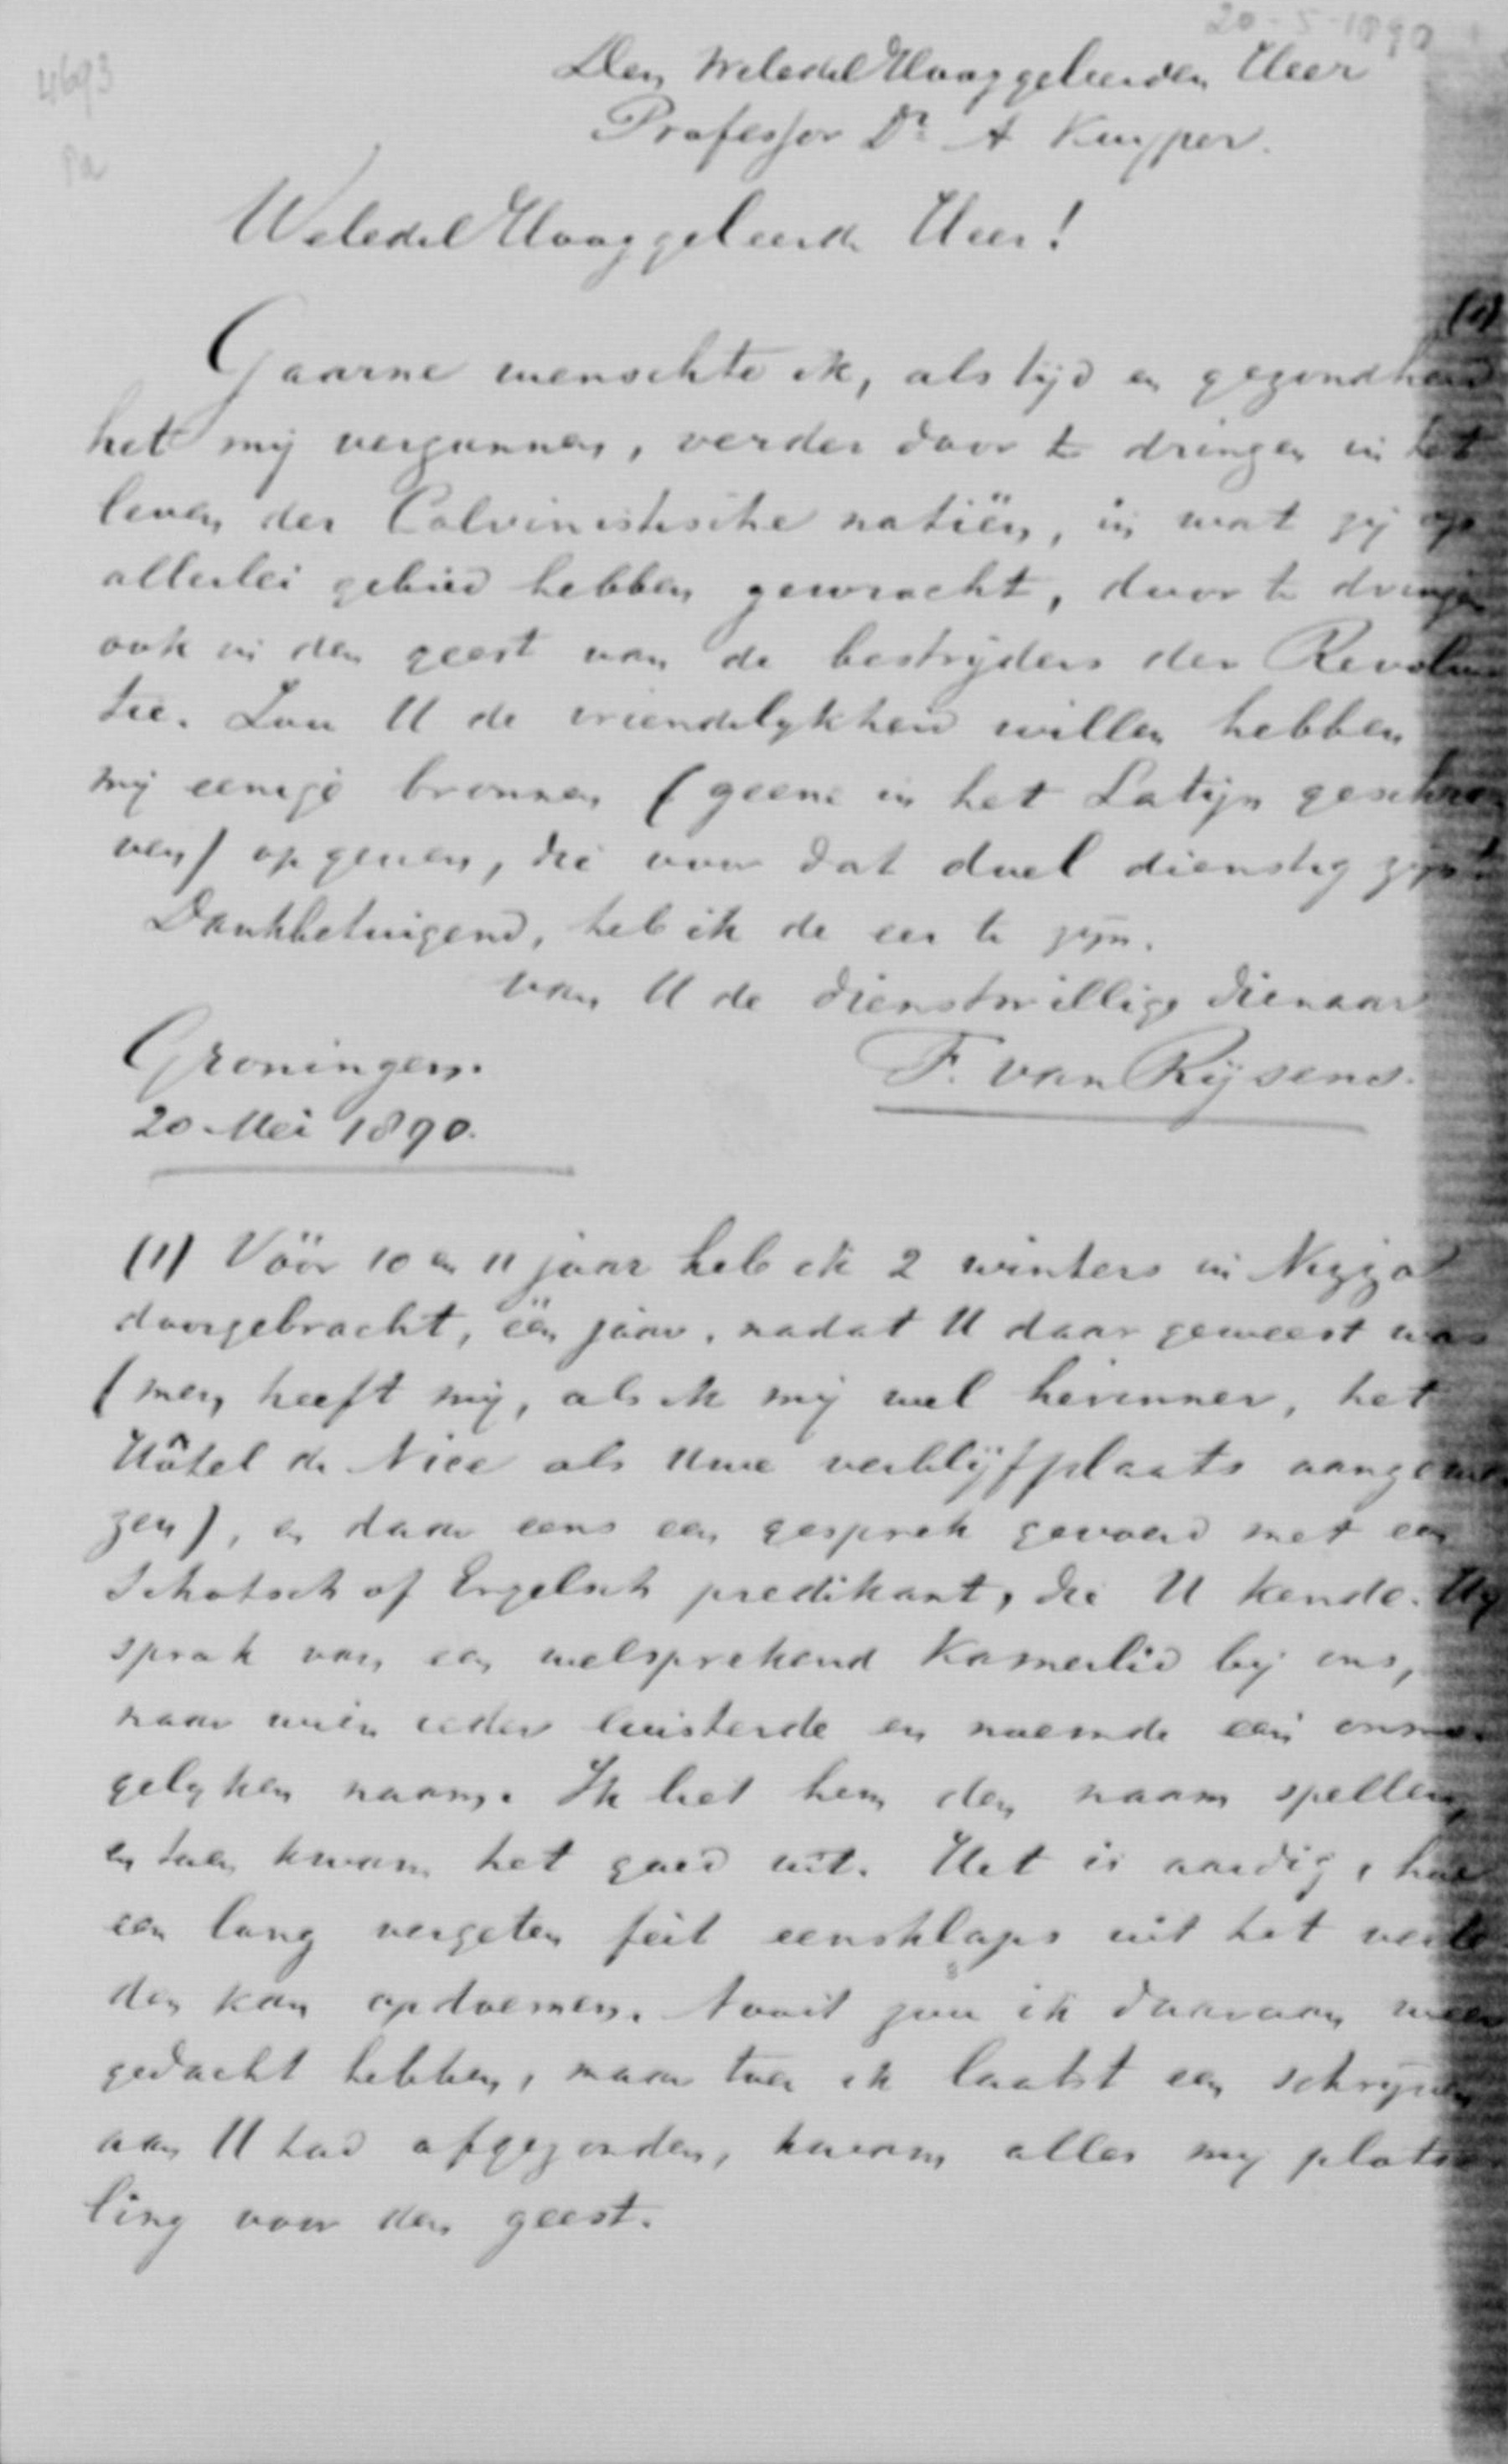 20-5-1890
4693
Den WeledelHooggeleerden Heer
Professor Dr A Kuyper.
WeledelHooggeleerde Heer!
(1)
Gaarne wenschte ik, als tijd en gezondheid
het mij vergunnen, verder door te dringen in het
leven der Calvinistische natiën, in wat zij op
allerlei gebied hebben gewracht, door te dringen
ook in den geest van de bestrijders der Revolu
tie. Zou U de vriendelykheid willen hebben
mij eenige bronnen (geene in het Latijn geschre
ven) op geven, die voor dat doel dienstig zijn
Dankbetuigend, heb ik de eer te zijn.
van U de dienstwillige dienaar
Groningen.
F. van Rijsens.
20 Mei 1890.
(1) Vóór 10 en 11 jaar heb ik 2 winters in Nizza
doorgebracht, één jaar, nadat U daar geweest was
(men heeft mij, als ik mij wel herinner, het
Hôtel de Nice als Uwe verblijfplaats aangewe
zen), en daar eens een gesprek gevoerd met een
Schotsch of Engelsch predikant, die U kende. Hij
sprak van een welsprekend Kamerlid bij ons,
naar wien ieder luisterde en noemde een onmo
gelyken naam. Ik liet hem den naam spellen,
en toen kwam het goed uit. Het is aardig, hoe
een lang vergeten feit eensklaps uit het verle
den kan opdoemen. Nooit zou ik daaraan meer
gedacht hebben, maar toen ik laatst een schrijven
aan U had afgezonden, kwam alles mij plotse
ling voor den geest.